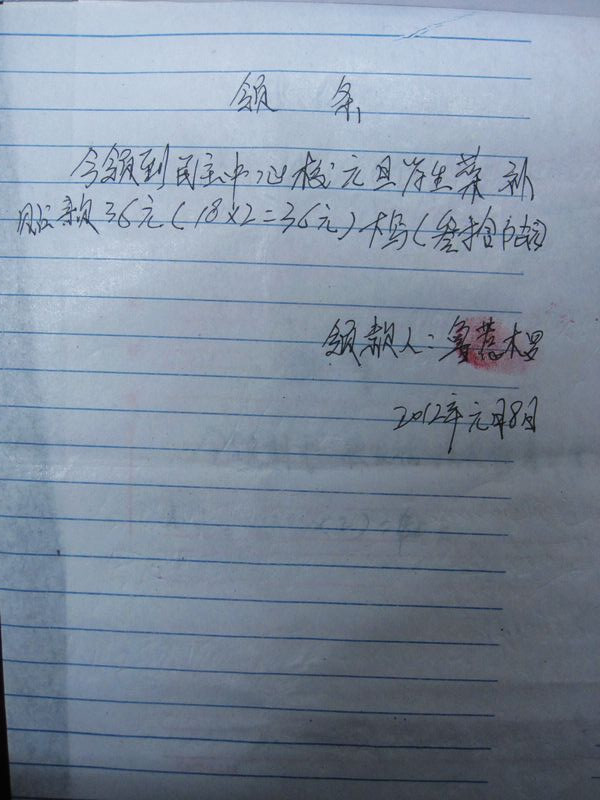 领 条
今领到民主中心校元旦学生菜补
助款36元(18×2=36元)大写(叁拾
领款人:鲁 木呷
2012年元月8日